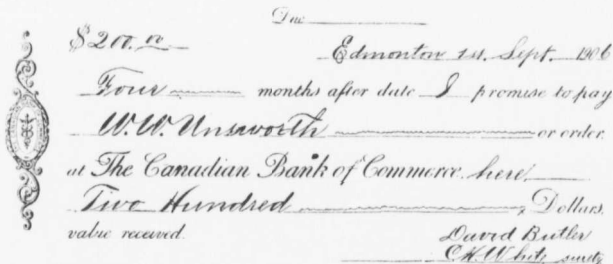 Due
$200.00 Edmonton 1st. Sept. 1906
Four months after date I promise to pay
W.W. Unsworth or order
at The Canadian Bank of Commerce here
Two Hundred Dollars.
value received. David Butler
C.H. White surety